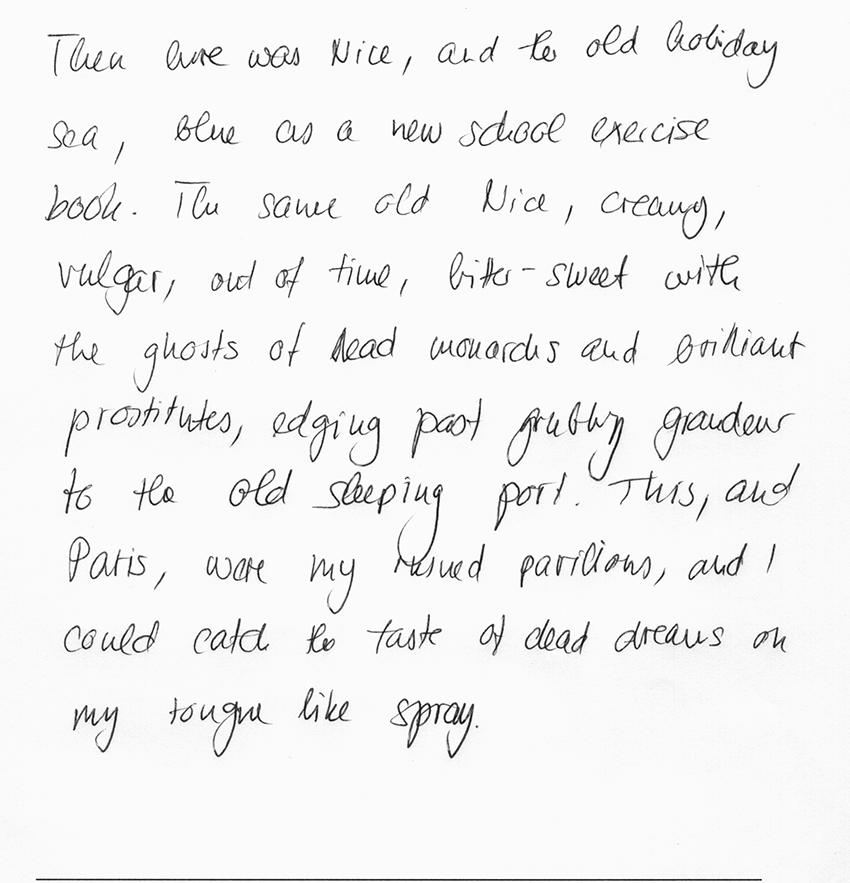 Then here was Nice, and the old holiday
sea, blue as a new school exercise
book. The same old Nice, creamy,
vulgar, out of time, bitter-sweet with
the ghosts of dead monarchs and brilliant
prostitutes, edging past grubby grandeur
to the old sleeping port. This, and
Paris, were my ruined pavilions, and I
could catch the taste of dead dreams on
my tongue like spray.